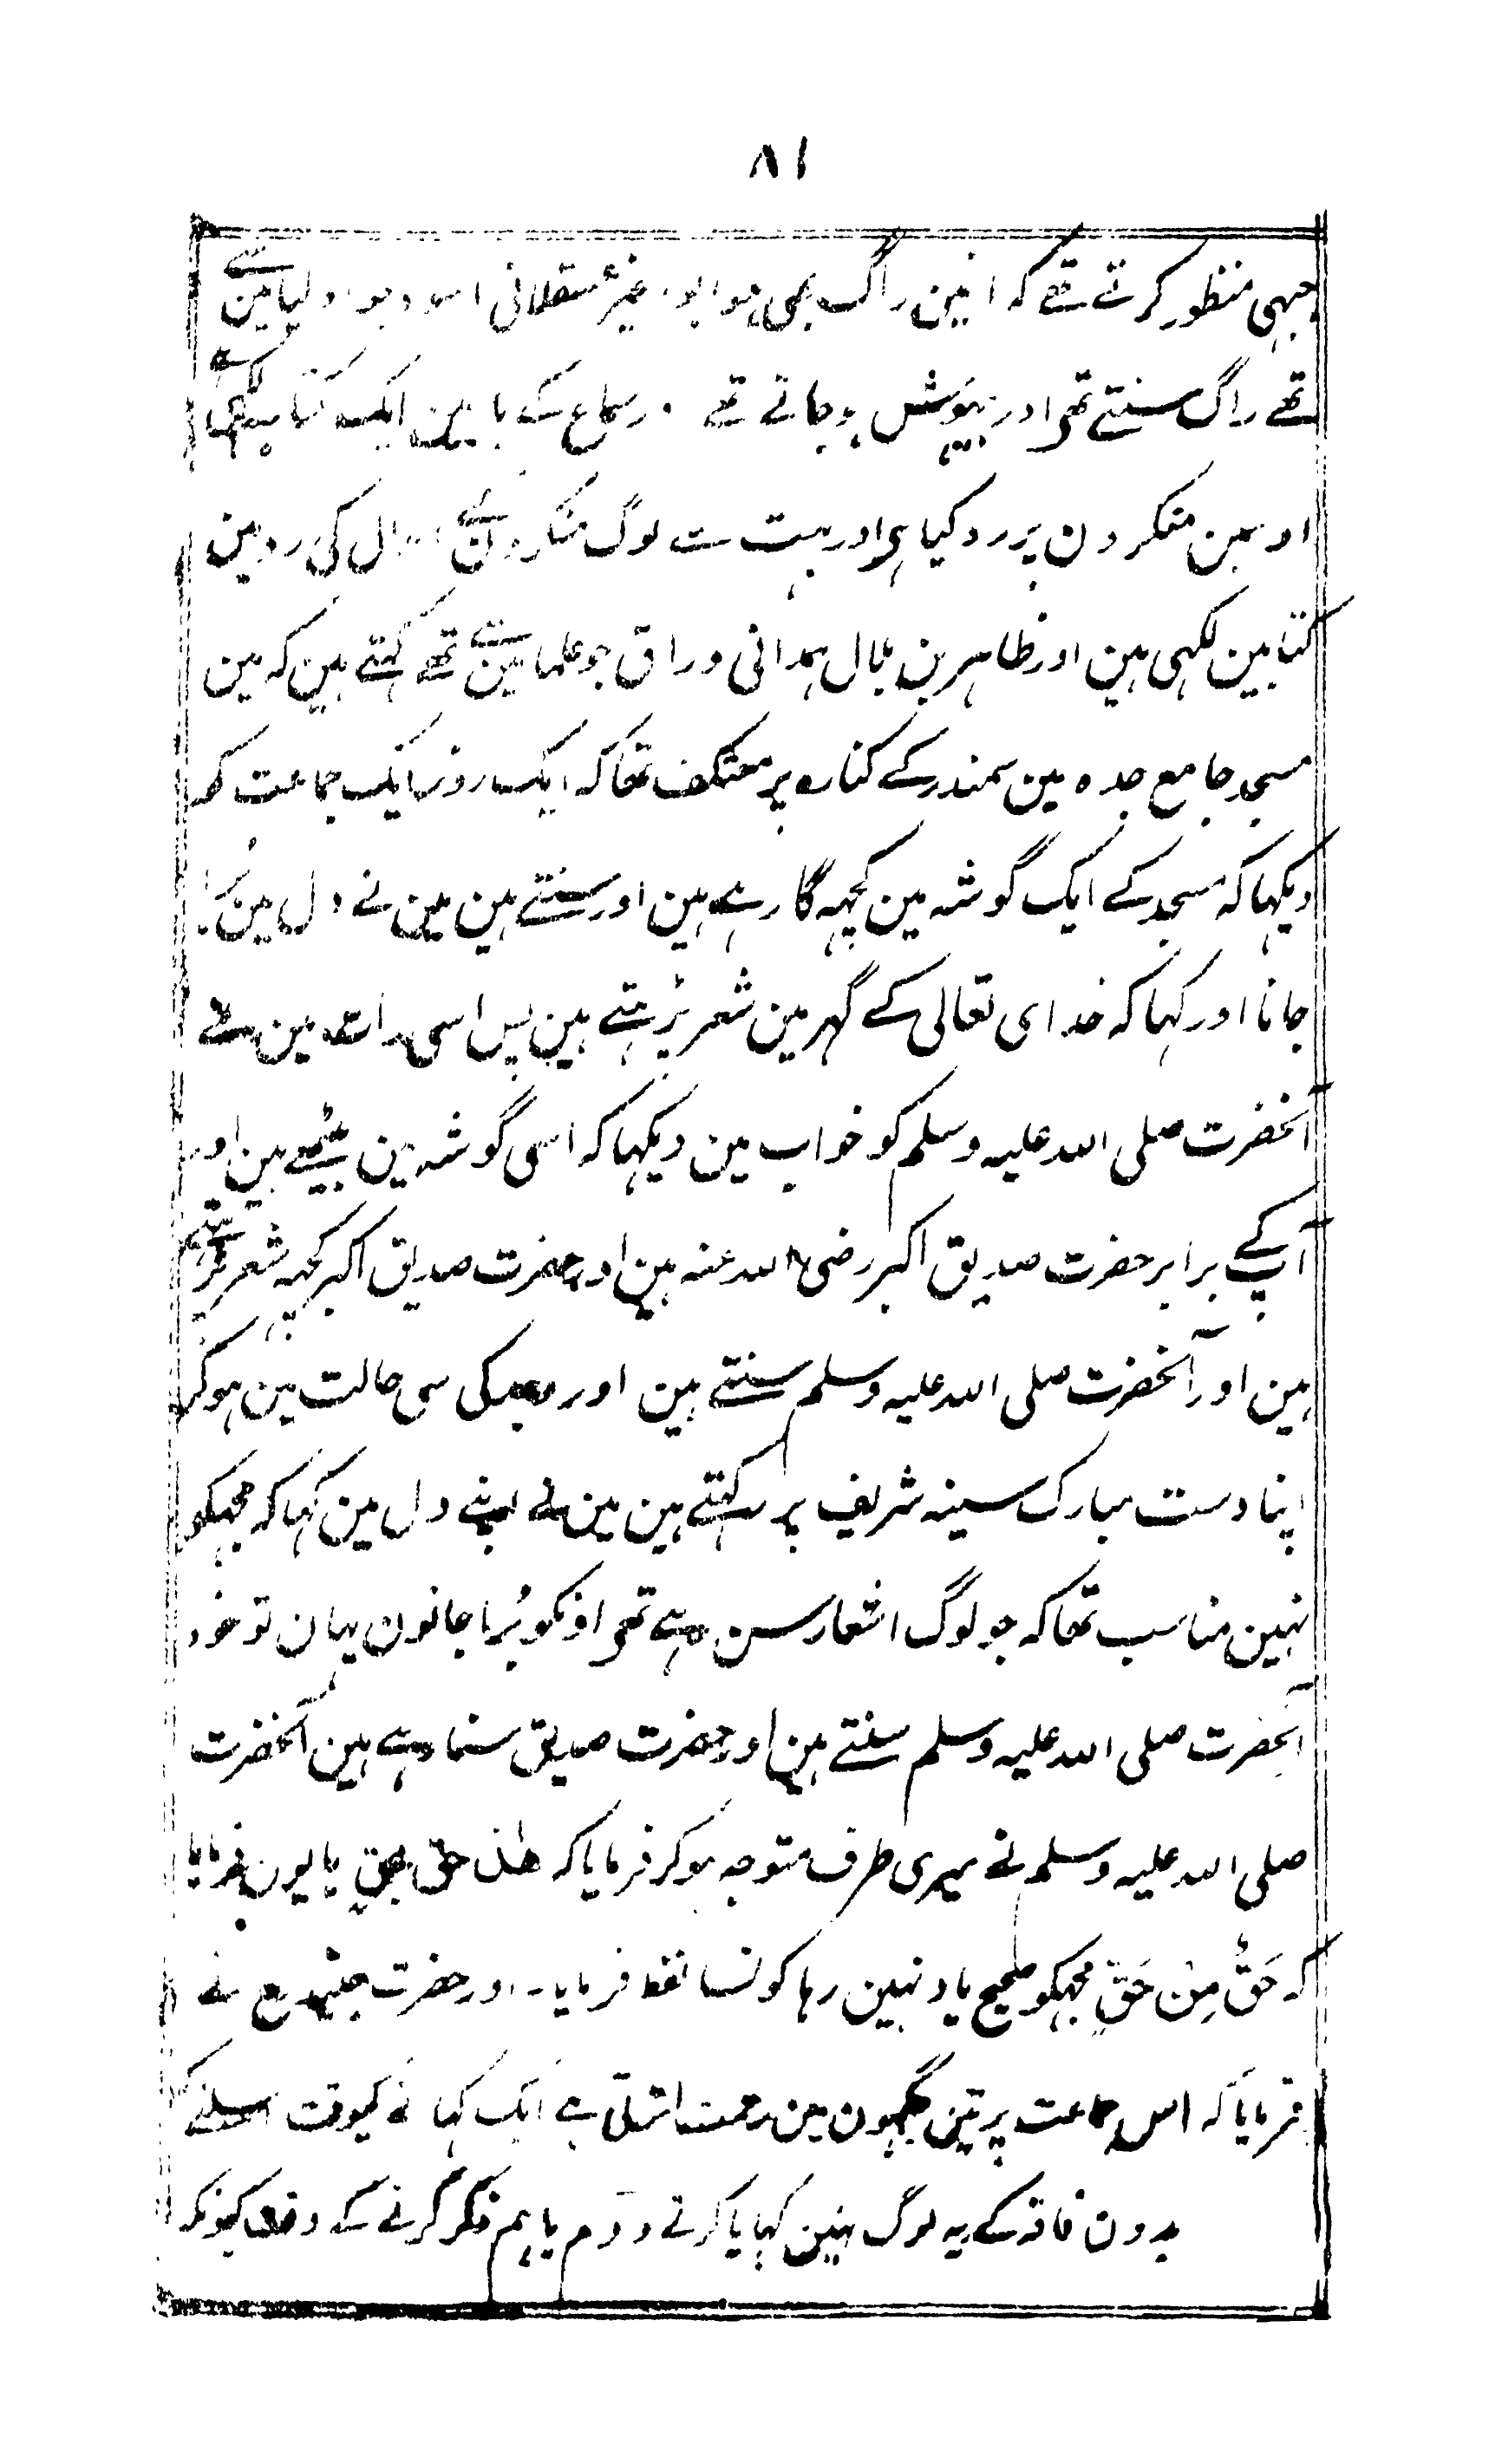 ۸۱
جبہی منظور کرتے تھے کہ انمین راگ بھی ہو اور عسقلانی اسود جو اولیا مین سے
تھے راگ سنتے تھی اور بیہوش ہو جاتے تھے اور سماع کے باب مین ایک کتاب لکہی ہے
اوسمین منکرون پر رد کیا ہی اور بہت سے لوگ منکرون کے اقوال کی رد مین
کتابین لکہی ہین اور ظاہر بن بلال ہمدانی وراق جو علما مین سے تھے کہتے ہین کہ مین
مسجد جامع جدہ مین سمندر کے کنارہ پر معتکف تھا کہ ایک روز ایک جماعت کو
دیکہا کہ مسجد کے ایک گوشہ مین کچہہ گا رہے ہین اور سنتے ہین مین نے دل مین بُرا
جانا اور کہا کہ خدای تعالی کے گہر مین شعر پڑہتے ہین پس اسی رات مین نے
آنحضرت صلی اللہ علیہ وسلم کو خواب مین دیکہا کہ اسی گوشہ مین بیٹھے ہین اور
آپ کے برابر حضرت صدیق اکبر رضی اللہ عنہ ہین اور حضرت صدیق اکبر کچہہ شعر پڑہتے
ہین اور آنحضرت صلی اللہ علیہ وسلم سنتے ہین اور وجد کی سی حالت مین ہوکر
اپنا دست مبارک سینہ شریف پر رکہتے ہین مین نے اپنے دل مین کہا کہ مجہکو
نہین مناسب تھا کہ جو لوگ اشعار سن رہے تھی اونکو بُرا جانون یہان تو خود
آنحضرت صلی اللہ علیہ وسلم سنتے ہین اور حضرت صدیق سنا رہے ہین آنحضرت
صلی اللہ علیہ وسلم نے میری طرف متوجہ ہوکر فرمایا کہ ھذا حق بحق یا یون فرمایا
کہ حَقٌّ مِنْ حَقٍّ مجہکو صحیح یاد نہین رہا کونسا لفظ فرمایا۔ اور حضرت جنید رح نے
فرمایا کہ اس جماعت پر تین جگہون مین رحمت اترتی ہے ایک کہانے کیوقت اسلئے کہ
بدون فاقہ کے یہ لوگ نہین کہایا کرتے دوم باہم ذکر کرنے کے وقت کیونکہ